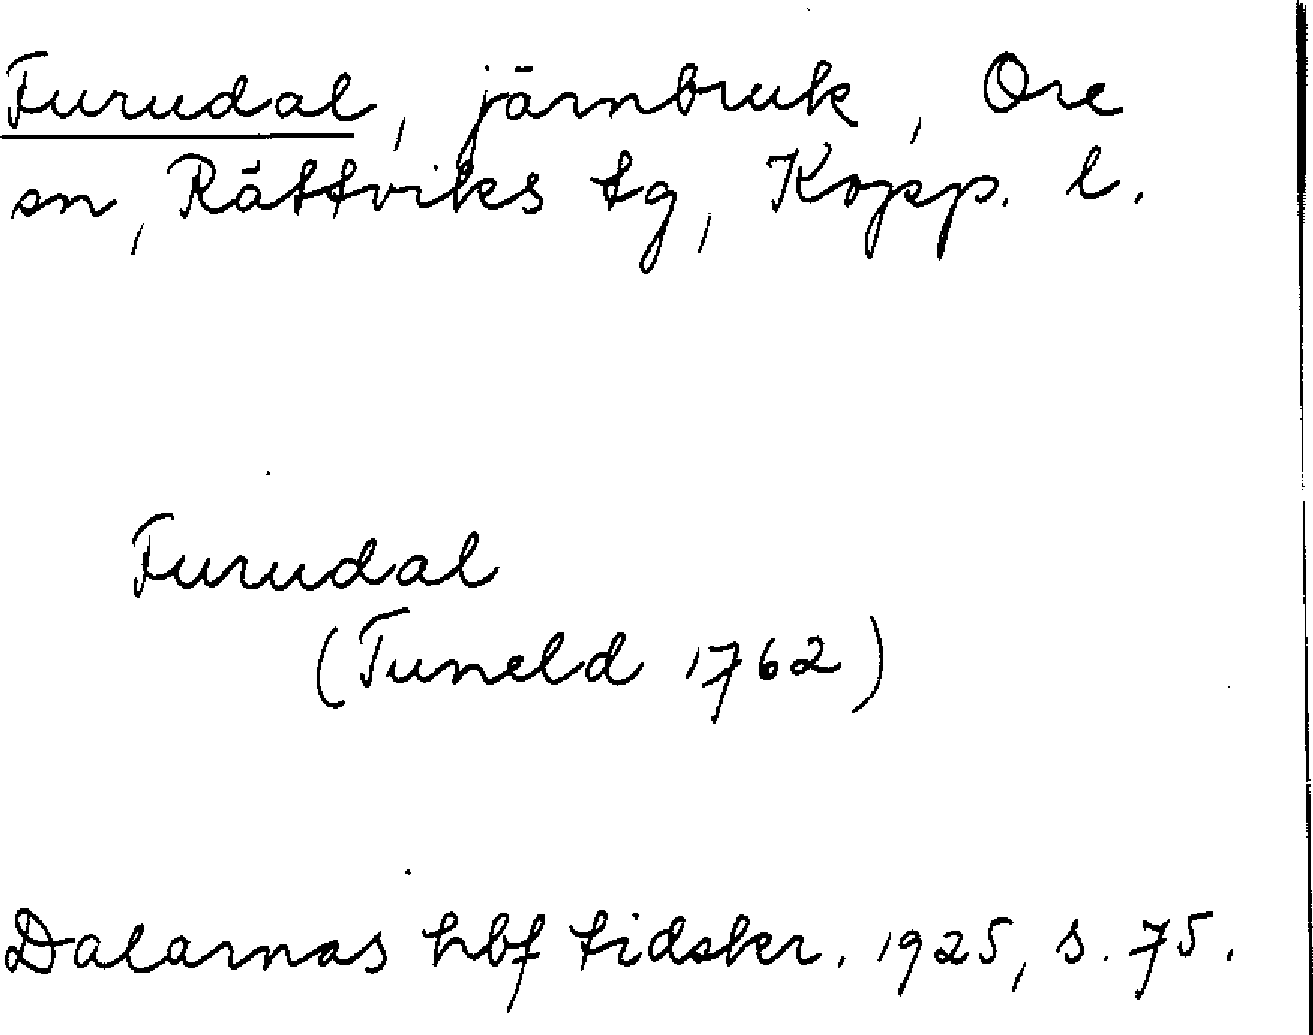 Furudal, järnbruk, Ore
sn, Rättviks tg, Kopp. l.
Furudal
(Tuneld 1762)
Dalarnas hbf tidskr. 1925, s. 75.